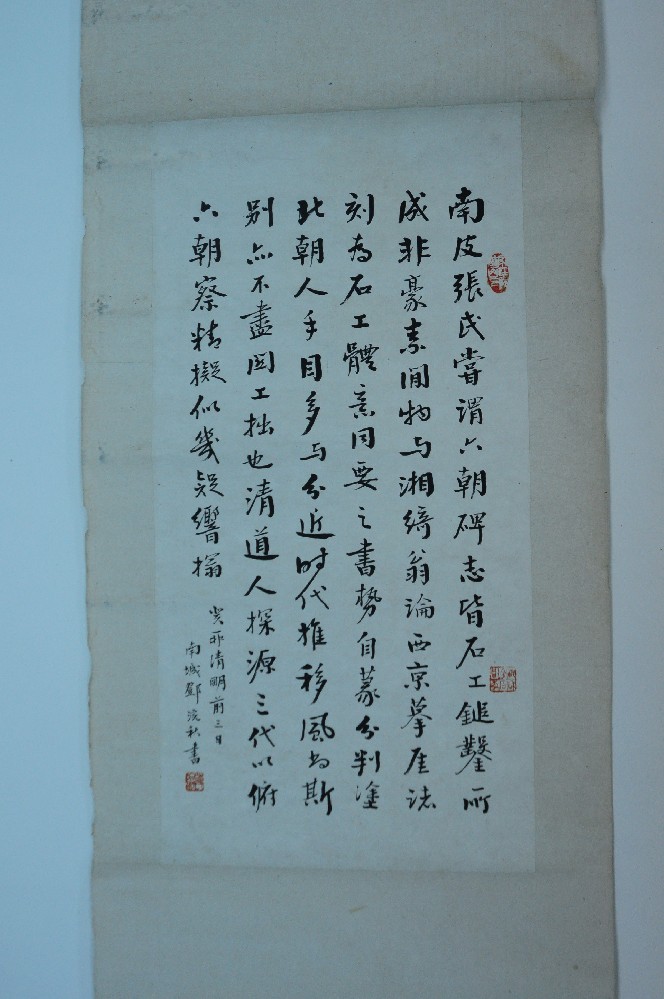 南皮張氏嘗謂六朝碑志皆石工鎚鑿所
成非豪素間物与湘綺翁論西京摹厓諸
刻為石工體意同要之書勢自篆分判塗
北朝人手目多与分近時代推移風尚斯
別亦不盡図工拙也清道人探源三代以俯
六朝察精擬似幾疑響搨
癸丑清明前三日
南城鄧 秋書